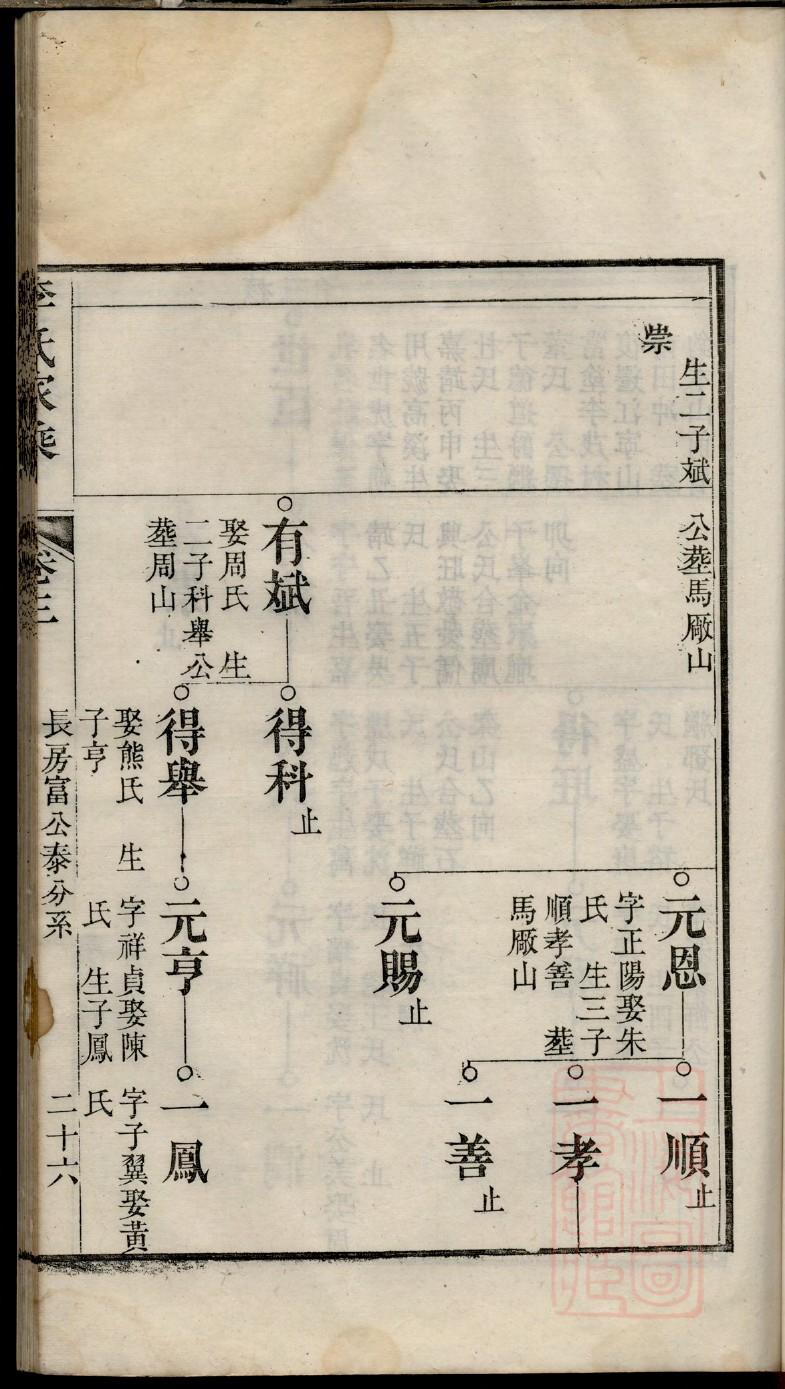 生二子斌
崇
公塟馬厰山
有斌
娶周氏　生
二子科舉公
塟周山
得科
止
得舉
娶熊氏　生
子亨
元恩
字正陽娶朱
氏　生三子
順孝善　塟
馬厰山
元賜
止
元亨
字祥貞娶陳
氏　生子鳳
一順
止
一孝
一善
止
一鳳
字子翼娶黃
氏
李氏家乘
卷三
長房富公泰分系
二十六